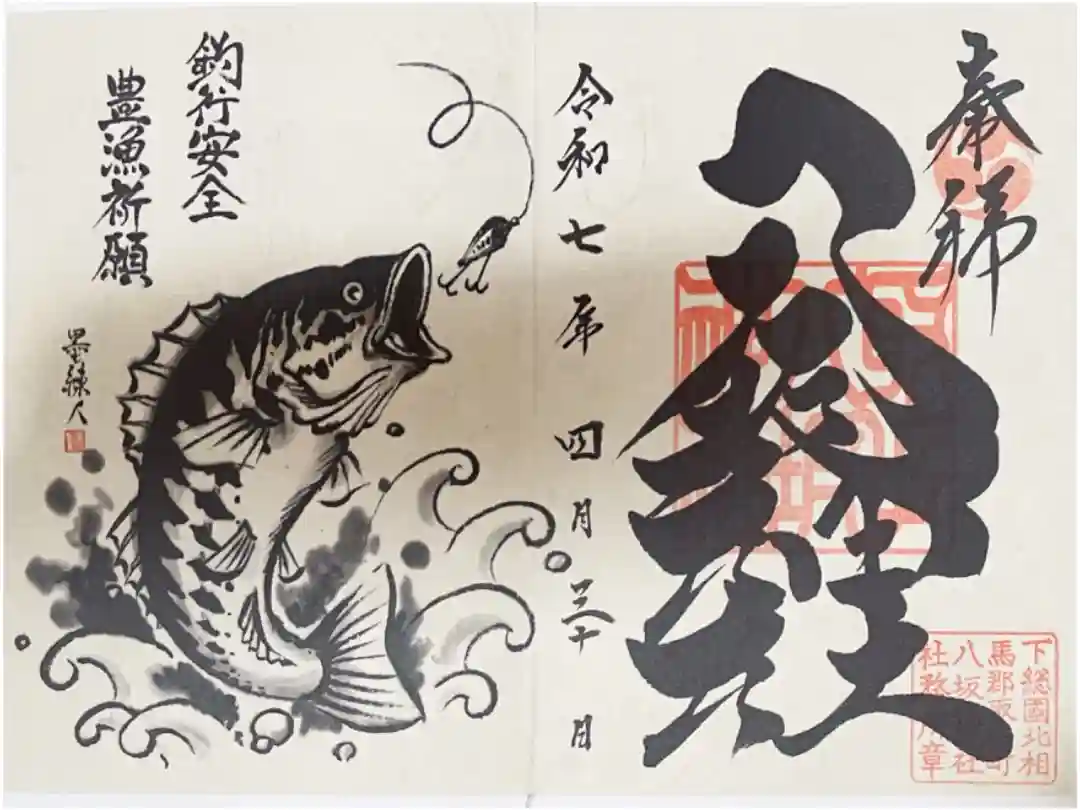 奉拝
八坂神社
下総國北相
馬郡取手町
八坂神社
社務所章
令和七年四月三十日
釣行安全
豊漁祈願